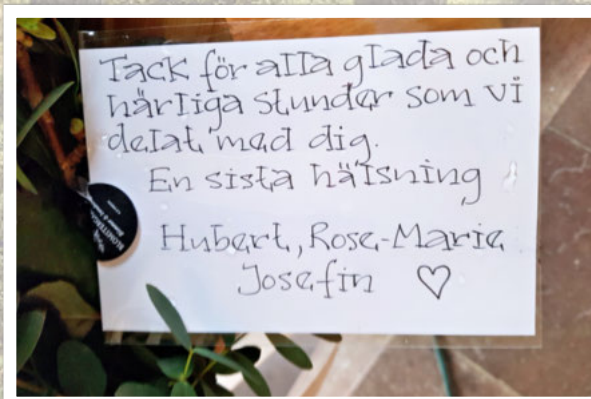 Tack för alla glada och
härliga stunder som vi
delat med dig.
En sista hälsning
Hubert, Rose-Marie
Josefin ♡